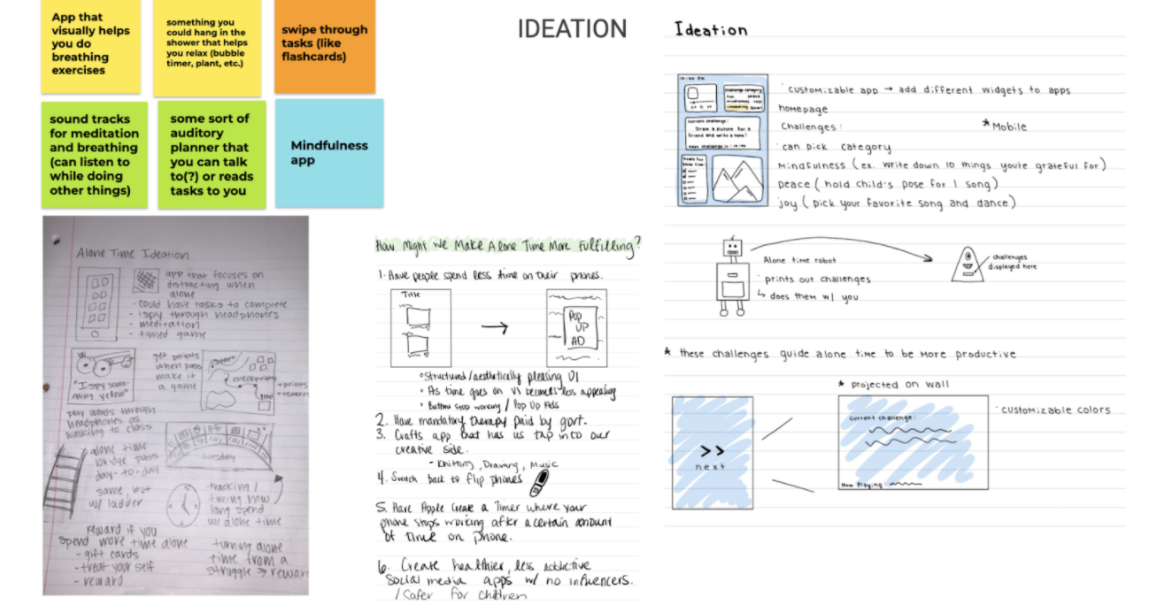 App that
visually helps
you do
breathing
exercises
something you
could hang in the
shower that helps
you relax (bubble
timer, plant, etc.)
swipe through
tasks (like
flashcards)
sound tracks
for meditation
and breathing
(can listen to
while doing
other things)
some sort of
auditory
planner that
you can talk
to(?) or reads
tasks to you
Mindfulness
app
IDEATION
Alone Time Ideation
app that focuses on
distracting when
alone
- could have tasks to complete
- ispy through headphones
- meditation
- timed game
"I spy some-
thing yellow"
get points
when pass
make it
a game
play words through
headphones as
walking to class
alone time
day-to-day
same, but
w/ ladder
tuesday
tracking/
timing how
long spend
w/ alone time
reward if you
spend more time alone
- gift cards
- treat your self
- reward
turning alone
time from a
struggle → reward
How Might We Make Alone Time More Fulfilling?
1. Have people spend less time on their phones.
Title
Pop
UP
AD
• Structured/aesthetically pleasing UI
• As time goes on UI becomes less appealing
• Buttons stop working / Pop Up Ads
2. Have mandatory therapy paid by govt.
3. Crafts app that has us tap into our
creative side.
- Knitting, Drawing, Music
4. Switch back to flip phones
5. Have Apple Create a Timer where your
phone stops working after a certain amount
of time on phone.
6. Create healthier, less addictive
Social media apps w/ no influencers.
/ Safer for children
Ideation
customizable app → add different widgets to apps
homepage
Challenges:
* Mobile
can pick category
Mindfulness (ex. write down 10 things you're grateful for)
peace (hold child's pose for 1 song)
joy (pick your favorite song and dance)
Current challenge:
Draw a picture for a
friend and write a note!
Alone time robot
prints out challenges
↳ does them w/ you
challenges
displayed here
* these challenges guide alone time to be more productive
* projected on wall
>>
next
Current challenge:
Now Playing:
customizable colors